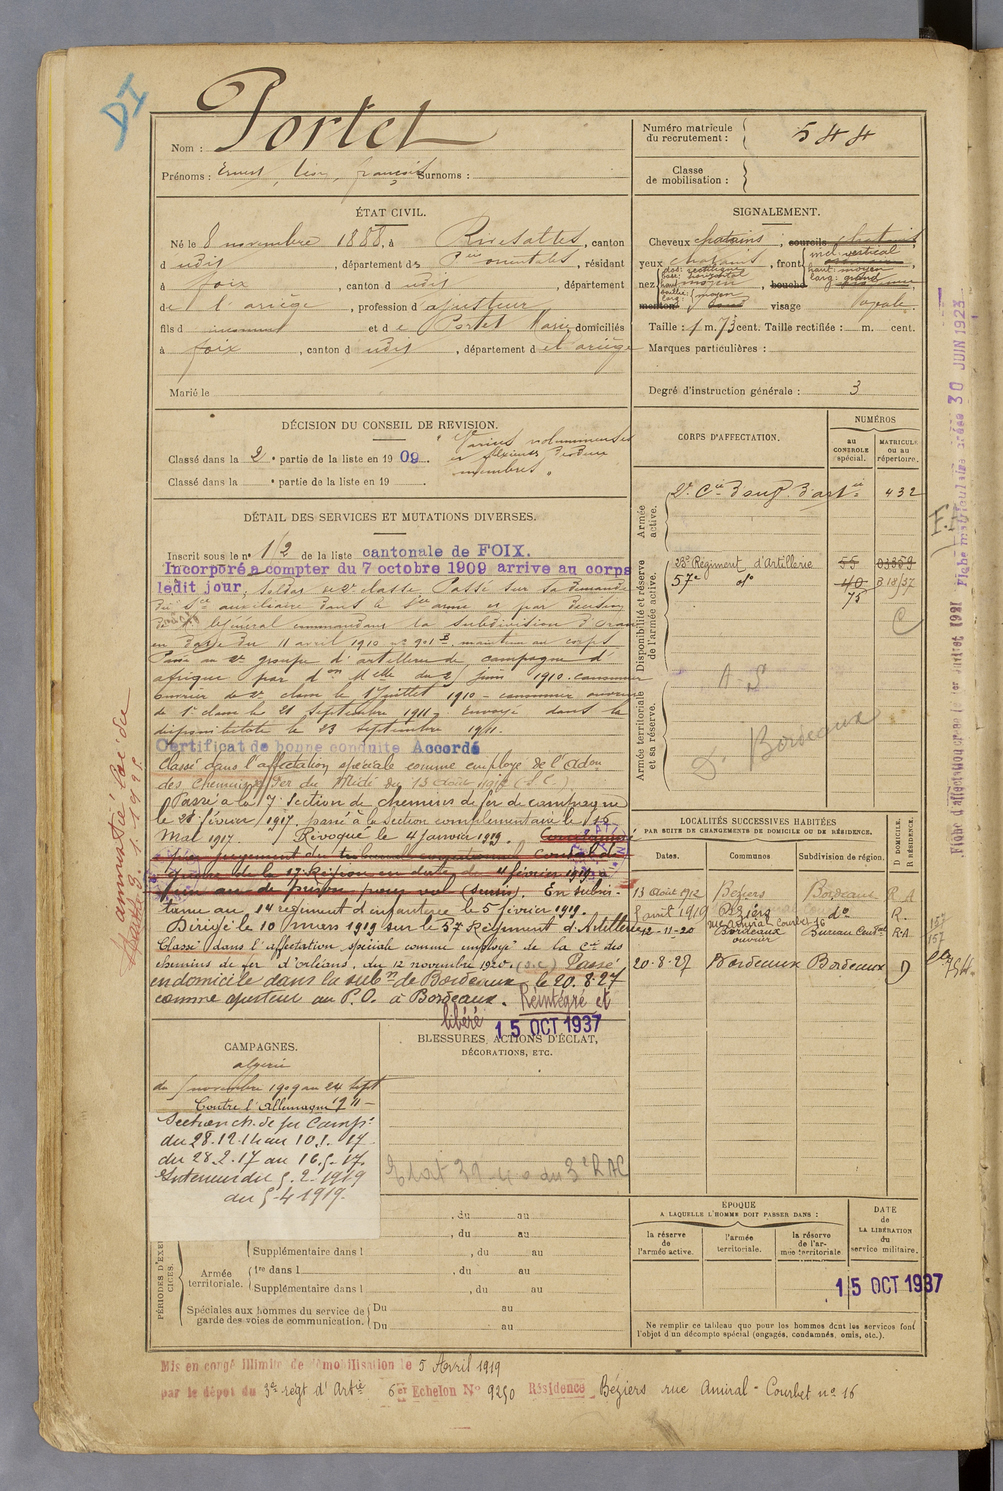 DI
Nom : Portet
Prénoms : Ernest, Léon, françois Surnoms :
Numéro matricule du recrutement : 544
Classe de mobilisation :
ÉTAT CIVIL.
Né le 8 novembre 1888, à Rivesaltes, canton
d udit, département des P. orientales, résidant
à foix, canton d udit, département
de l'ariège, profession d'ajusteur
fils d inconnu et de Portet Marie, domiciliés
à foix, canton d udit, département de l'ariège
Marié le
SIGNALEMENT.
Cheveux chatains, sourcils chatains
yeux chatains, front incl: vertical
haut: moyen
larg: grand
nez dos: rectiligne
base: horizontal
haut: moyen
larg: moyen
bouche
menton visage ovale.
Taille : 1 m. 73 cent. Taille rectifiée : m. cent.
Marques particulières :
Degré d'instruction générale : 3
DÉCISION DU CONSEIL DE REVISION.
Classé dans la 2e partie de la liste en 1909. "Varices volumineuses
membres"
Classé dans la e partie de la liste en 19
DÉTAIL DES SERVICES ET MUTATIONS DIVERSES.
Inscrit sous le n° 12 de la liste cantonale de FOIX.
Incorporé à compter du 7 octobre 1909 arrivé au corps
ledit jour, soldat de 2e classe. Passé sur sa demande
du Sce auxiliaire dans le Sce armé et par décision
du Général commandant la subdivision d'oran
en date du 11 avril 1910 n° 901 B. maintenu au corps
Passé au 2e groupe d'artillerie de campagne d'
afrique par don Melle du 2 juin 1910. canonnier
ouvrier de 2e classe le 1 Juillet 1910 - canonnier ouvrier
de 1e classe le 21 septembre 1911. Envoyé dans la
disponibilité le 23 septembre 1911.
Certificat de bonne conduite Accordé
Classé dans l'affectation spéciale comme employé de l'Adon
des Chemins de fer du Midi du 13 Août 1912 (S.C.)
Passé à la 7e Section de chemins de fer de campagne
le 28 février 1917. passé à la section complémentaire le 15
Mai 1917. Révoqué le 4 Janvier 1919. Condamné
par jugement du tribunal correctionnel
de la 17e Région en date du 4 février 1919 à
un an de prison pour vol (sursis). En subsis-
tance au 14 régiment d'infanterie le 5 février 1919.
Dirigé le 10 mars 1919 sur le 57 Régiment d'Artillerie
Classé dans l'affectation spéciale comme employé de la Cie des
chemins de fer d'orléans, du 12 novembre 1920. (S.C) Passé
en domicile dans la subon de Bordeaux le 20.8.27
comme ajusteur au P.O. à Bordeaux. Réintégré et
libéré 15 OCT 1937
amnistié loi du
CORPS D'AFFECTATION.
NUMÉROS
au CONTROLE spécial.
MATRICULE ou au répertoire.
Armée active.
2e Cie d'ouv. d'artie 432
Disponibilité et réserve de l'armée active.
23e Régiment d'Artillerie 55 01359
57e do 40 318/37
75
C
Armée territoriale et sa réserve.
A.S
S. Bordeaux
LOCALITÉS SUCCESSIVES HABITÉES
PAR SUITE DE CHANGEMENTS DE DOMICILE OU DE RÉSIDENCE.
Dates. Communes Subdivision de région. D. DOMICILE. R. RÉSIDENCE.
13 Août 1912 Beziers Bordeaux R A
5 avril 1919 Béziers do R.
rue Amiral Courbet 16
12-11-20 Bordeaux R.A
ouvrier
20-8-27 Bordeaux Bordeaux D
157
157
754.
Fiche d'affectation créée le 1er juillet 1921
Fiche matriculaire créée 30 JUIN 1923
CAMPAGNES.
algérie
du 5 novembre 1909 au 24 Sept
1911
Contre l'Allemagne
Section ch. de fer Campe
du 28.12.14 au 10.1.17
du 28.2.17 au 16.5.17.
Intérieur du 5.2.1919
au 5-4 1919.
BLESSURES, ACTIONS D'ÉCLAT,
DÉCORATIONS, ETC.
, du au
, du au
PÉRIODES D'EXERCICES.
Supplémentaire dans l , du au
Armée territoriale. 1re dans l , du au
Supplémentaire dans l , du au
Spéciales aux hommes du service de garde des voies de communication. Du au
Du au
ÉPOQUE
A LAQUELLE L'HOMME DOIT PASSER DANS :
la réserve de l'armée active.
l'armée territoriale.
la réserve de l'armée territoriale
DATE DE LA LIBÉRATION du service militaire.
15 OCT 1937
Ne remplir ce tableau que pour les hommes dont les services font
l'objet d'un décompte spécial (engagés, condamnés, omis, etc.).
Mis en congé illimité de démobilisation le 5 Avril 1919
par le dépôt du 3e régt d'Artie 6e Echelon N° 9250 Résidence Béziers rue Amiral-Courbet n° 16